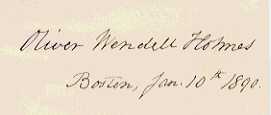 Oliver Wendell Holmes
Boston, Jan. 10th 1890.